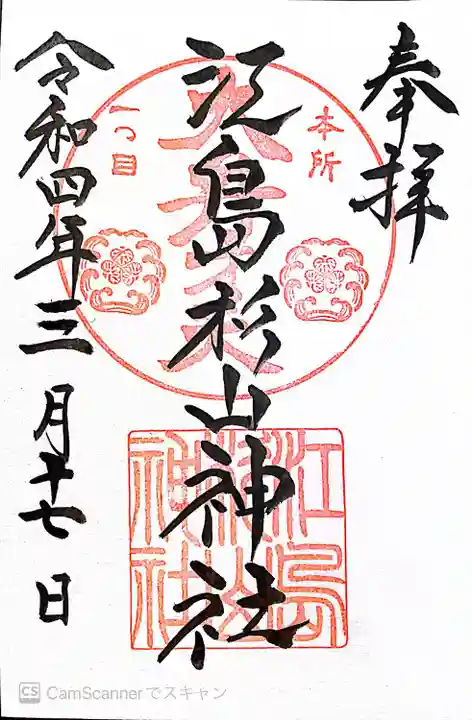 奉拝
本所
一つ目
江島杉山神社
江島
杉山
神社
令和四年三月十七日
CS CamScannerでスキャン